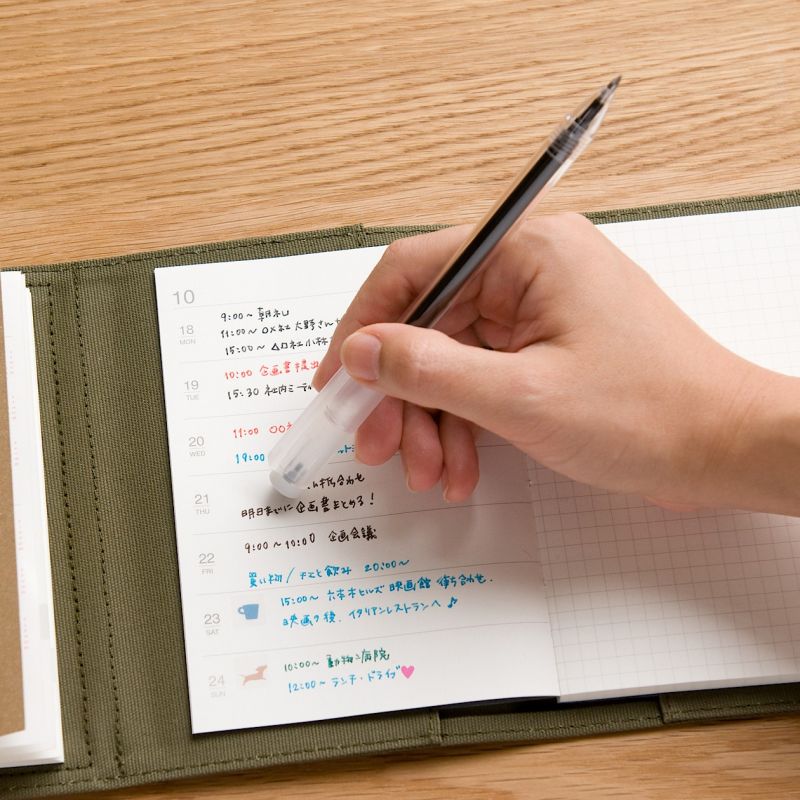 10
18 MON
9:00～ 朝礼
11:00～ ○×社 大野さん
15:00～ △□社 小林
19 TUE
10:00 企画書提出
15:30 社内ミーティ
20 WED
11:00 ○○
19:00
21 THU
打ち合わせ
明日までに企画書まとめる!
22 FRI
9:00～10:00 企画会議
買い物/ と飲み 20:00～
23 SAT
15:00～ 六本木ヒルズ 映画館 待ち合わせ.
映画の後、イタリアンレストランへ♪
24 SUN
10:00～ 動物病院
12:00～ ランチ・ドライブ♥